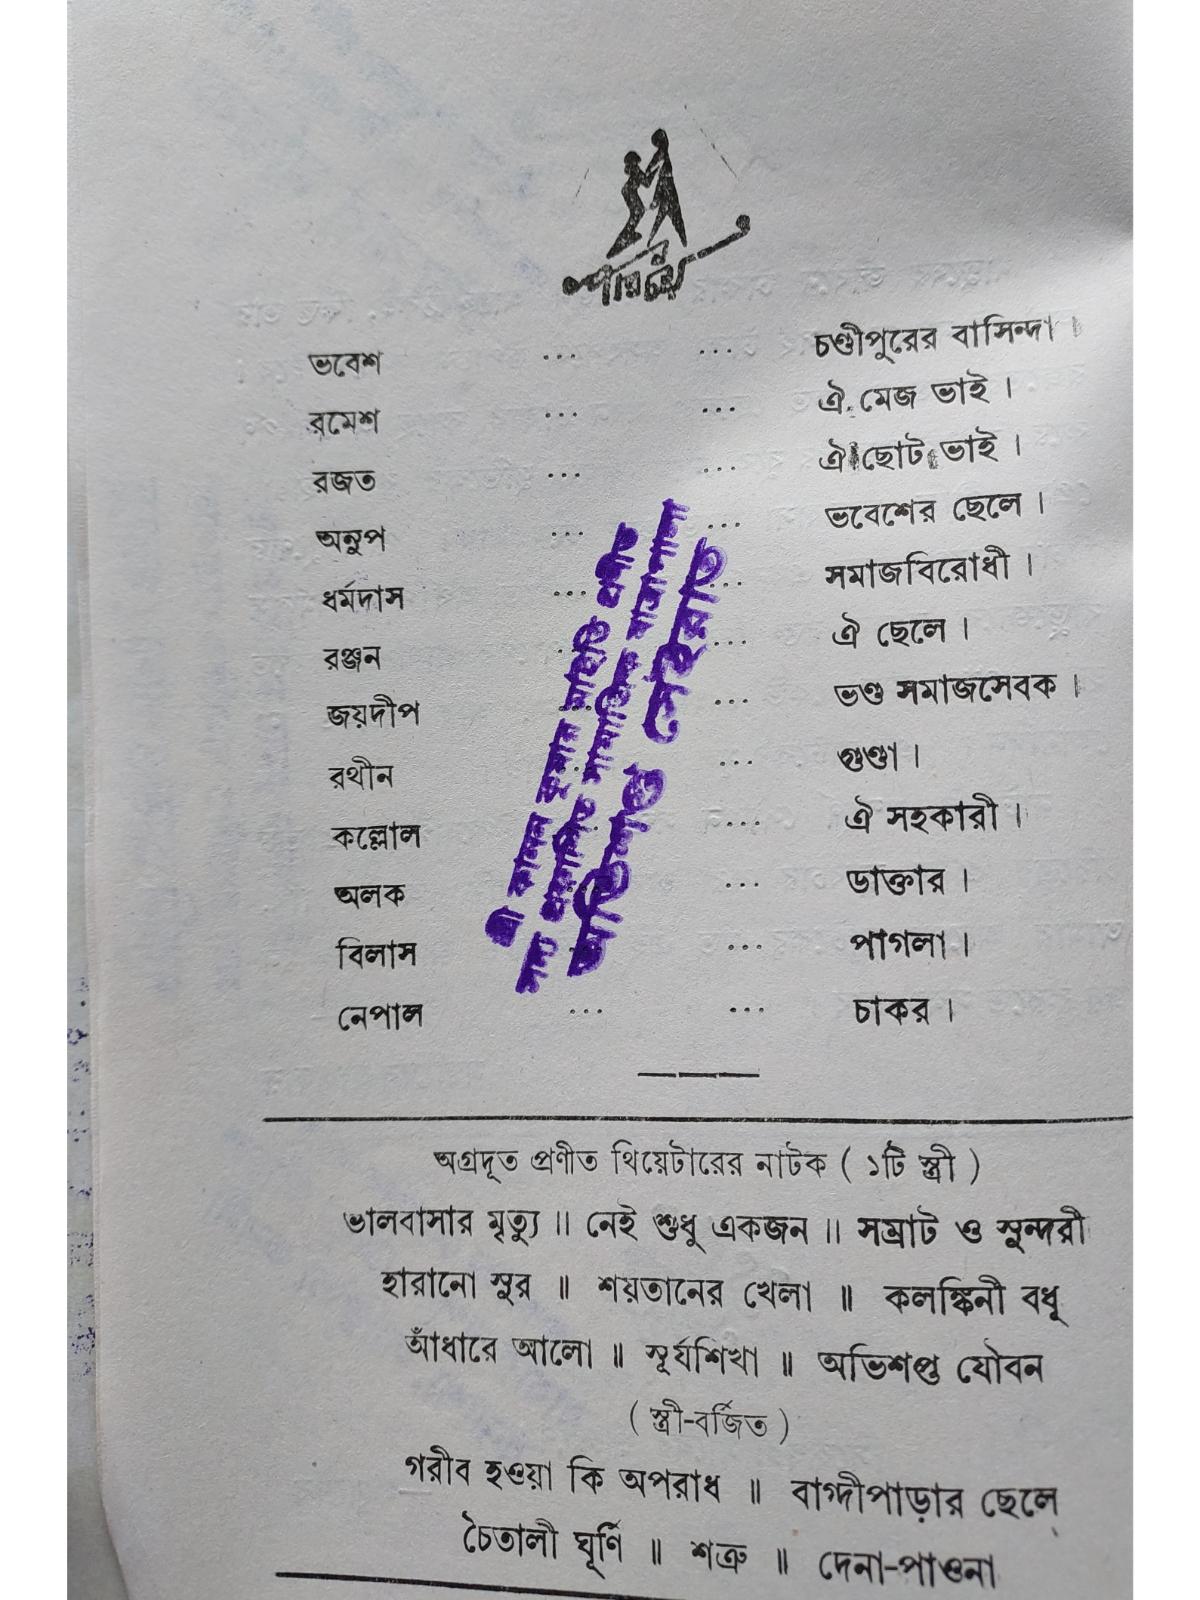 পরিচয়
ভবেশ ... ... চণ্ডীপুরের বাসিন্দা।
রমেশ ... ... ঐ মেজ ভাই।
রজত ... ... ঐ ছোট ভাই।
অনুপ ... ... ভবেশের ছেলে।
ধর্মদাস ... ... সমাজবিরোধী।
রঞ্জন ... ... ঐ ছেলে।
জয়দীপ ... ... ভণ্ড সমাজসেবক।
রথীন ... ... গুণ্ডা।
কল্লোল ... ... ঐ সহকারী।
অলক ... ... ডাক্তার।
বিলাস ... ... পাগলা।
নেপাল ... ... চাকর।
শ্রী কানন কুমার মাইতি প্রণীত
সদ্য প্রকাশিত সামাজিক যাত্রাপালা
অভিশপ্ত সেইরাত
অগ্রদূত প্রণীত থিয়েটারের নাটক ( ১টি স্ত্রী )
ভালবাসার মৃত্যু ॥ নেই শুধু একজন ॥ সম্রাট ও সুন্দরী
হারানো সুর ॥ শয়তানের খেলা ॥ কলঙ্কিনী বধূ
আঁধারে আলো ॥ সূর্যশিখা ॥ অভিশপ্ত যৌবন
( স্ত্রী-বর্জিত )
গরীব হওয়া কি অপরাধ ॥ বাগ্দীপাড়ার ছেলে
চৈতালী ঘূর্ণি ॥ শত্রু ॥ দেনা-পাওনা